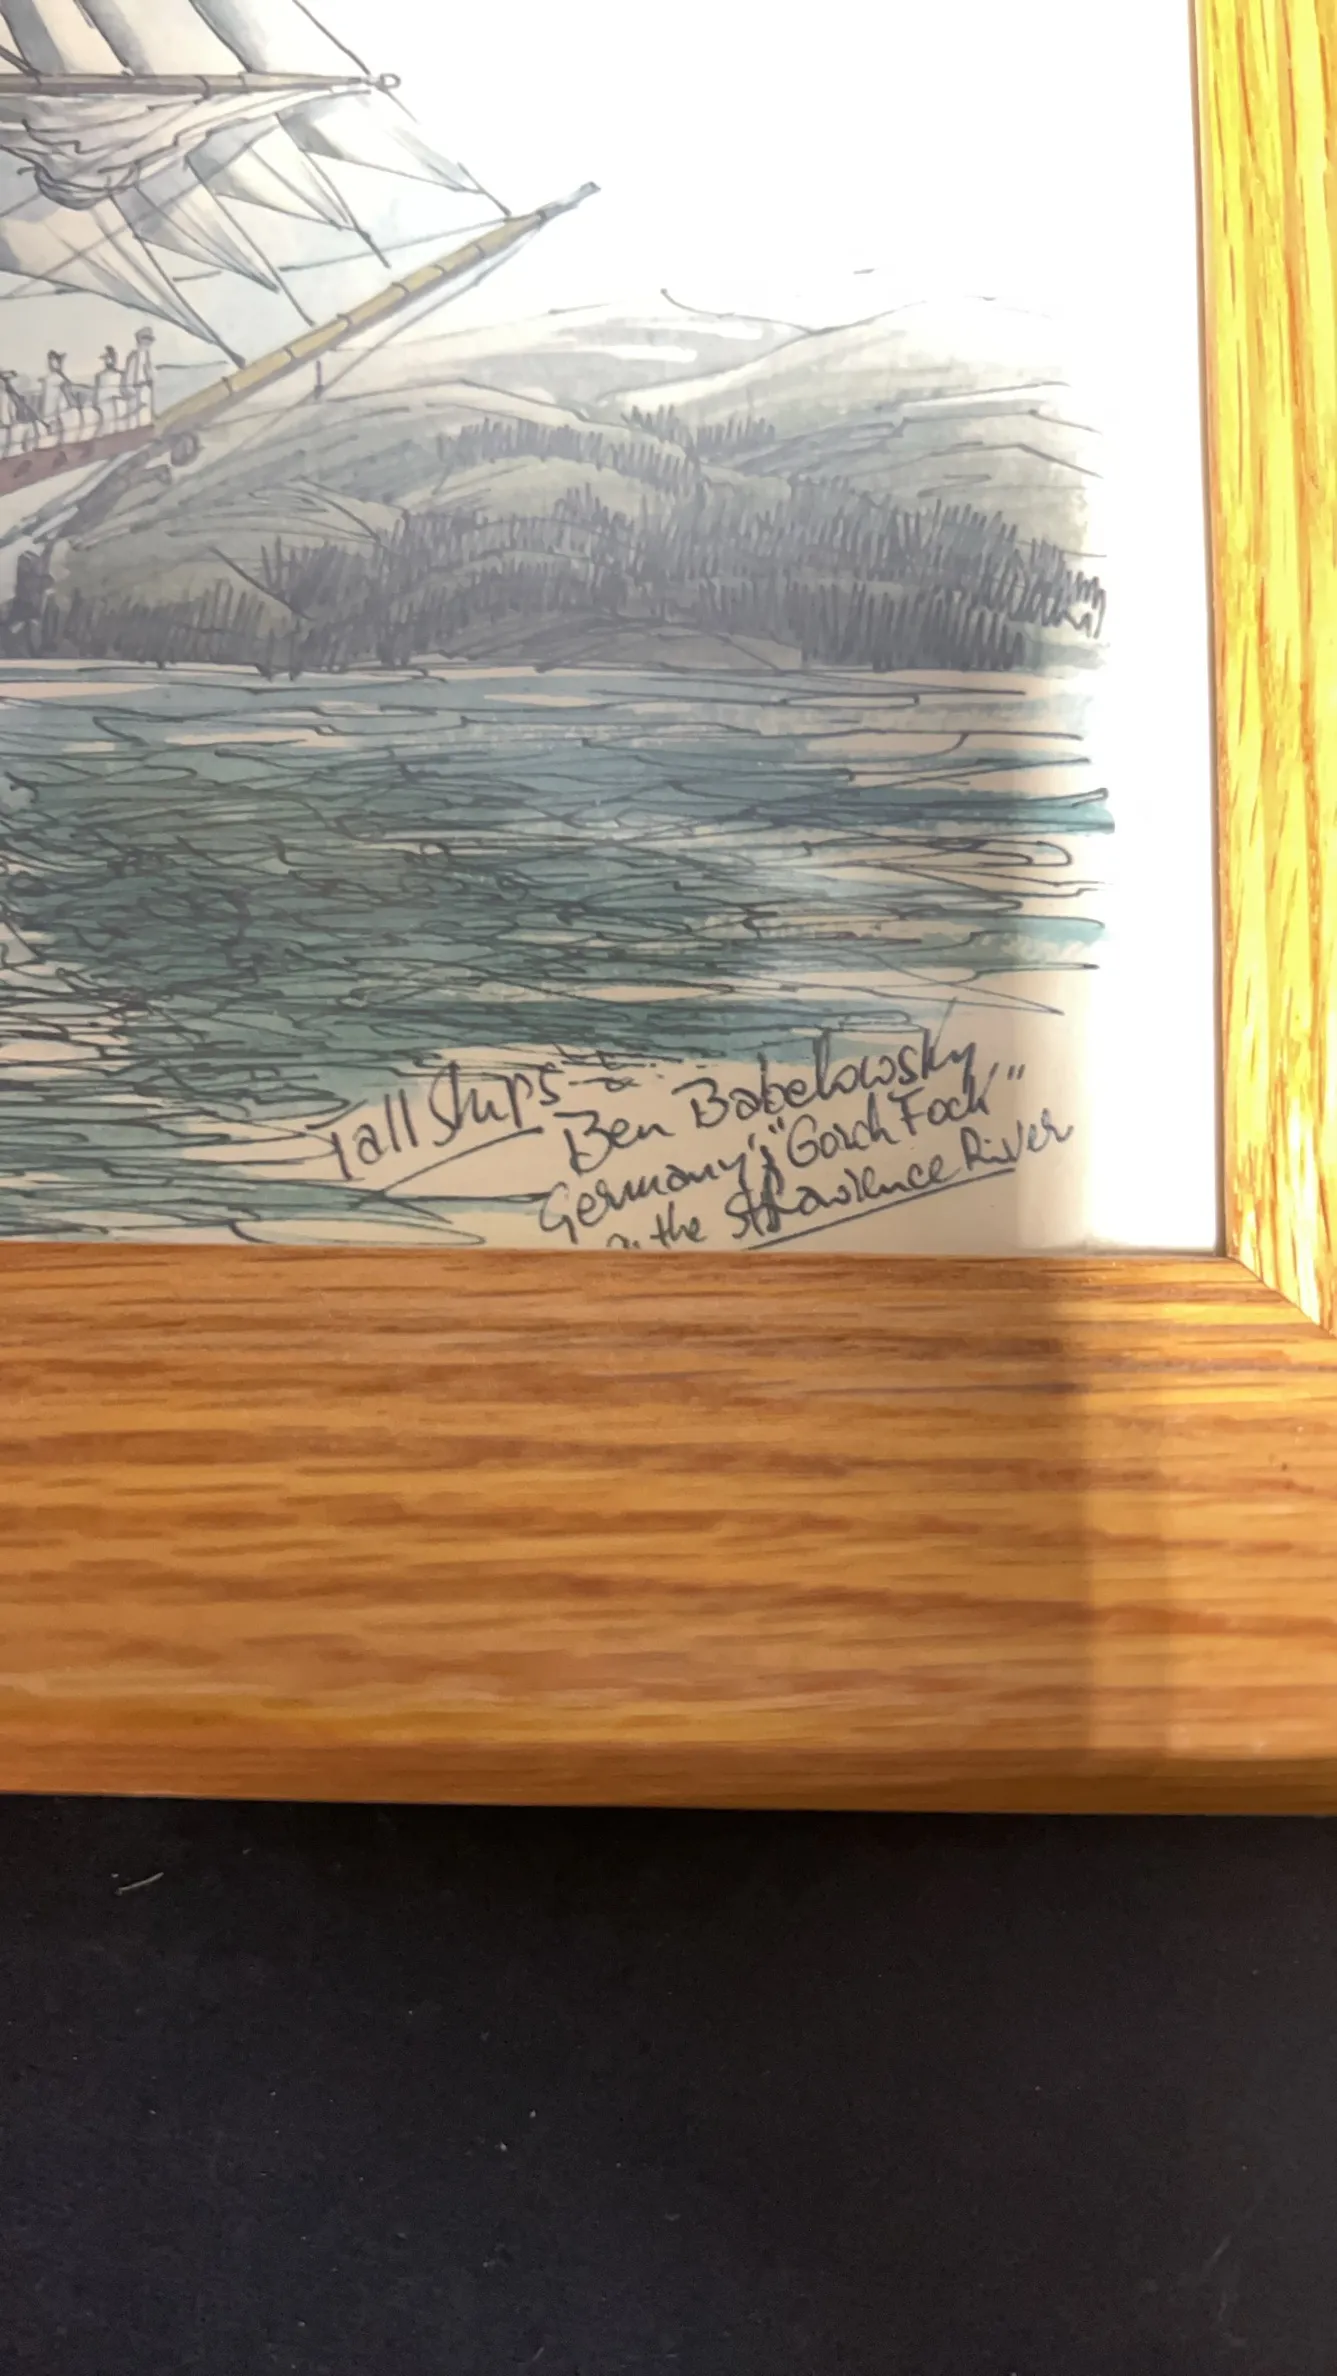 Tall Ships
Ben Babelowsky
Germany's "Gorch Fock"
the St Lawrence River